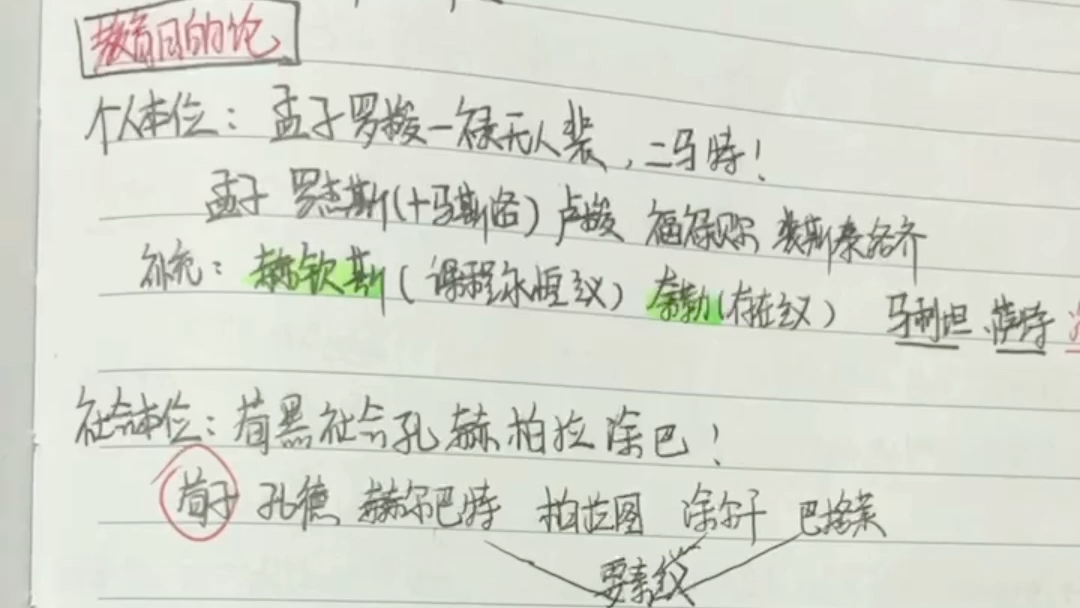 教育目的论
个人本位：孟子罗拨一禄无人裴，二马特！
孟子 罗杰斯(+马斯洛) 卢梭 福禄贝尔 裴斯泰洛齐
补充：赫钦斯(课程永恒主义) 奈勒(存在主义) 马利坦、萨特
社会本位：荀黑社会孔赫柏拉涂巴！
荀子 孔德 赫尔巴特 柏拉图 涂尔干 巴格莱
要素主义